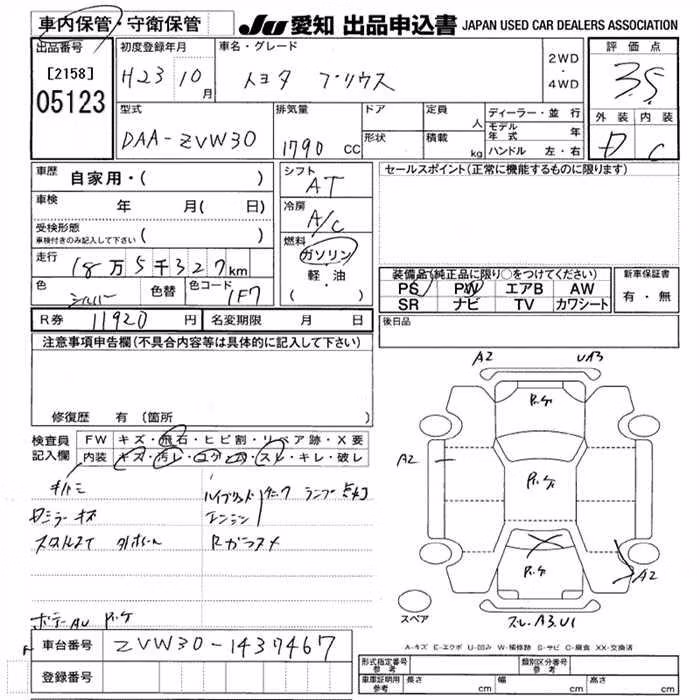 車内保管・守衛保管
JU 愛知 出品申込書 JAPAN USED CAR DEALERS ASSOCIATION
出品番号
[2158]
05123
初度登録年月
H23 10月
車名・グレード
トヨタ プリウス
2WD
・
4WD
評価点
3.5
外装 内装
D C
型式
DAA-ZVW30
排気量
1790 CC
ドア
形状
定員 人
積載 kg
ディーラー・並行
モデル年式 年
ハンドル 左・右
車歴 自家用・( )
車検 年 月( 日)
受検形態
車検付きのみ記入して下さい ( )
走行 18万5千327km
色 シルバー 色替 色コード 1F7
シフト
AT
冷房
A/C
燃料
ガソリン
軽・油
( )
セールスポイント(正常に機能するものに限ります)
装備品(純正品に限り○をつけてください)
PS PW エアB AW
SR ナビ TV カワシート
新車保証書
有・無
R券 11920円 名変期限 月 日
後日品
注意事項申告欄(不具合内容等は具体的に記入して下さい)
修復歴 有 (箇所 )
検査員
記入欄
FW キズ・飛石・ヒビ割・リペア跡・X要
内装 キズ・汚レ・コゲ・穴・スレ・キレ・破レ
ハイブリッド
エンジン
チェックランプ点灯
Rガラスキズ
A2 UA3
A2
A2
スレ・A3.U1
スペア
A-キズ E-エクボ U-凹み W-補修跡 S-サビ C-腐食 XX-交換済
車台番号 ZVW30-1437467
登録番号
形式指定番号
参考
類別区分番号
参考
車庫証明用
参考
長さ cm 幅 cm 高さ cm